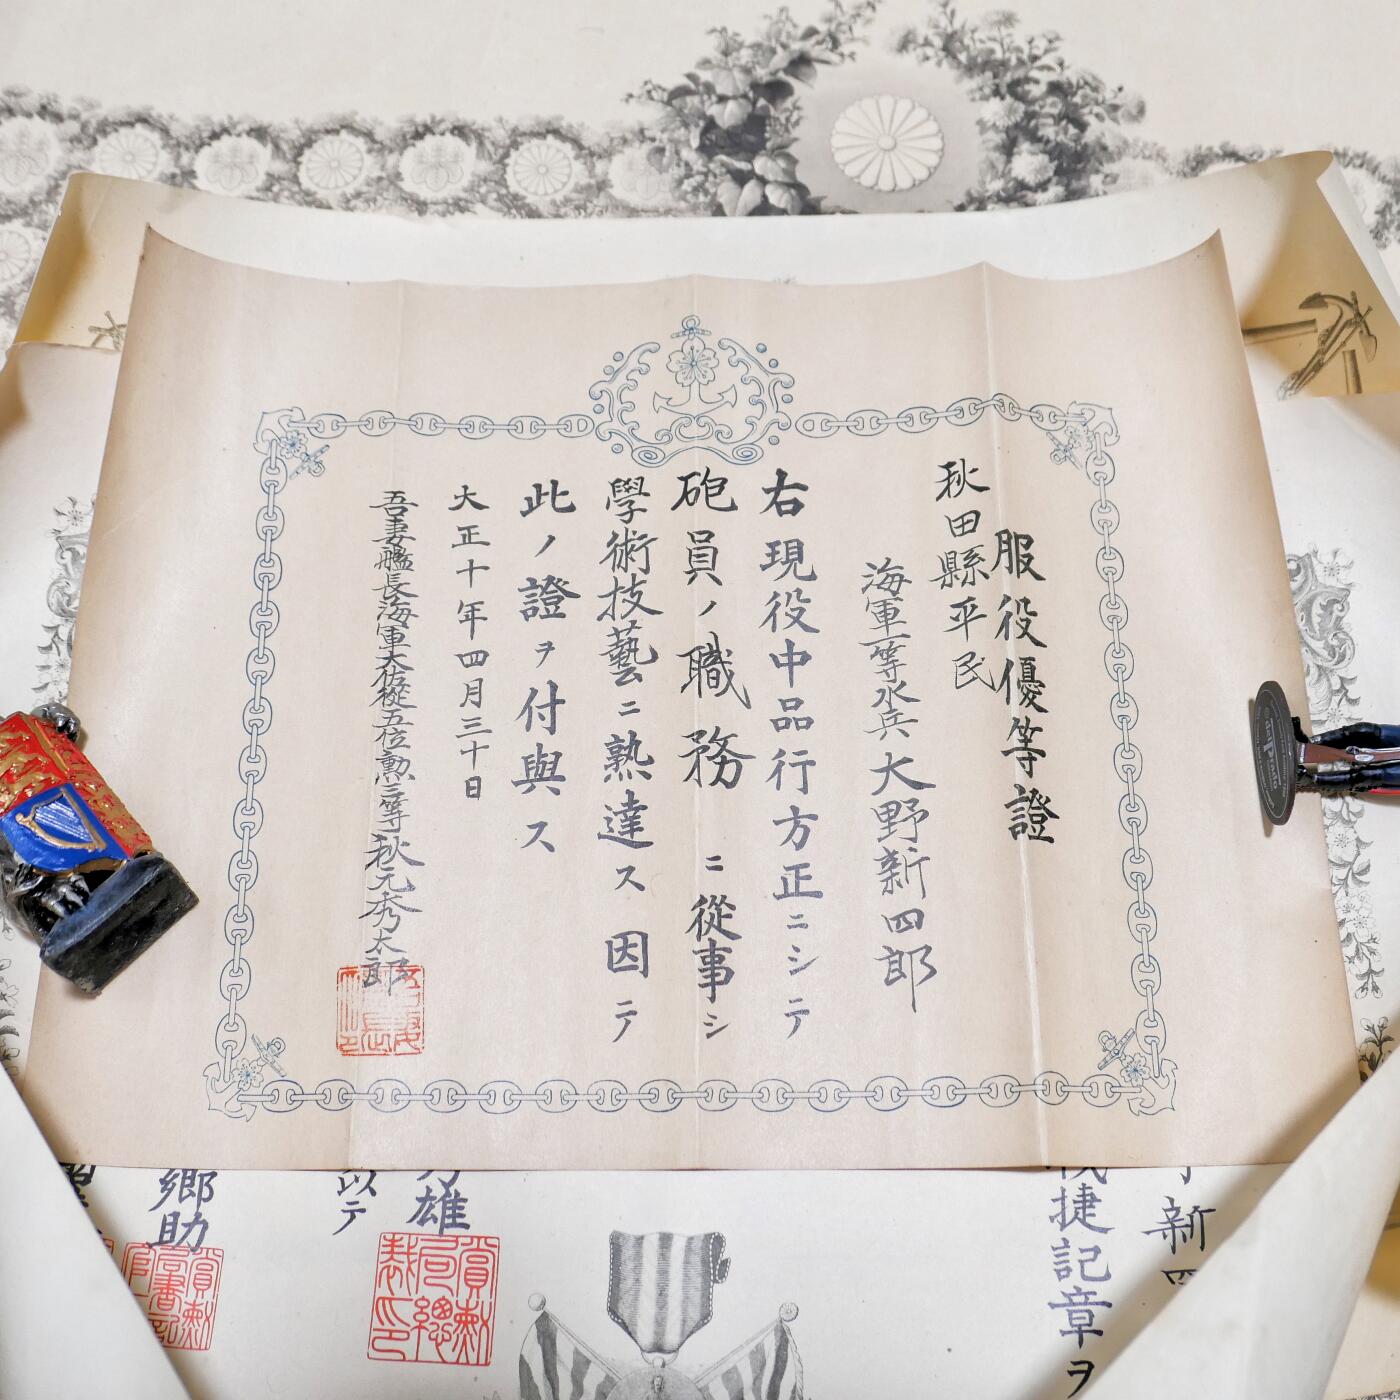 服役優等證
秋田縣平民
海軍一等水兵大野新四郎
右現役中品行方正ニシテ
砲員ノ職務ニ從事シ
學術技藝ニ熟達ス因テ
此ノ證ヲ付與ス
大正十年四月三十日
吾妻艦長海軍大佐從五位勲三等秋元秀太郎
新四
捷記章ヲ
雄
以テ
郷助
賞勲局總裁印